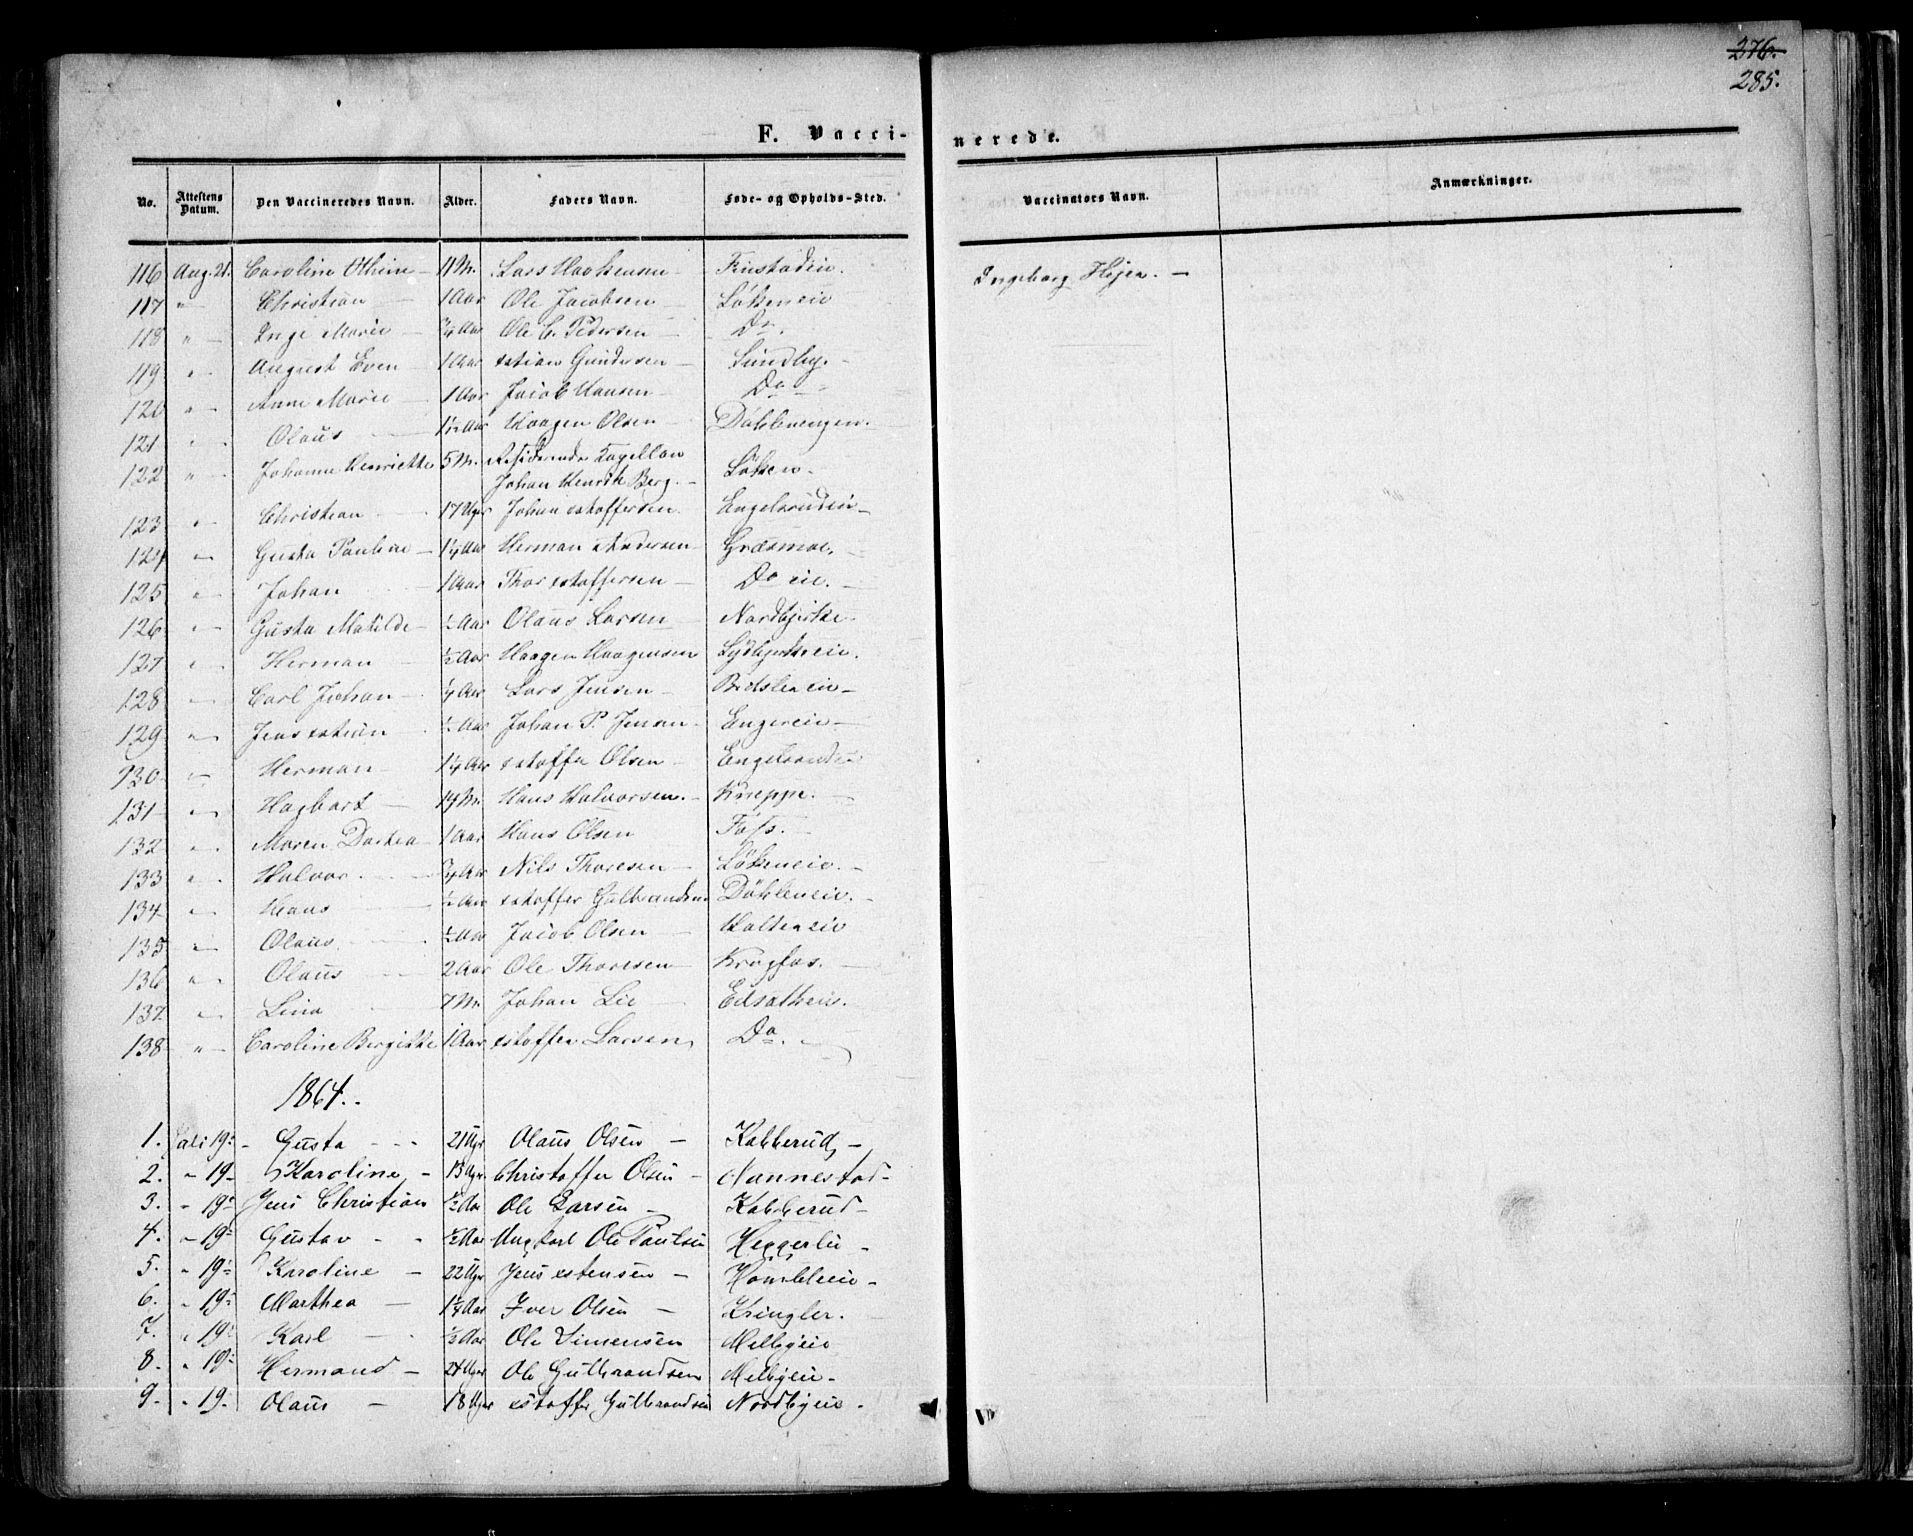 276.
285.
F. Vacci- nerede.
No. Attestens Datum. Den Vaccineredes Navn. Alder. Faders Navn. Føde- og Opholds-Sted. Vaccinators Navn. Anmærkninger.
116 Aug. 21. Caroline Othine 11 M. Lars Haakensen Finstadeie. Ingeborg Hejer.
117 " Christian 1 Aar Ole Jacobsen Løkeneie
118 " Inge Marie 3/4 Aar Ole C. Pedersen Do.
119 " August Even 1 Aar xstian Gundersen Sundby.
120 " Anne Marie 1 Aar Jacob Hansen Do
121 " Olaus 1½ Aar Haagen Olsen Døhlenengen.
122 " Johanne Henriette 5 M. Residerende Capellan
Johan Henrik Berg. Løken.
123 " Christian 17 Uger Johan xstoffersen. Engelsrudeie
124 " Gusta Pauline 1¼ Aar Herman Andersen Græsmoe.
125 " Johan 1 Aar Thor xstoffersen Do eie.
126 " Gusta Matilde ½ Aar Olaus Larsen Nordbykirke
127 " Herman ½ Aar Haagen Haagensen
128 " Carl Johan ¼ Aar Lars Jensen
129 " Jens xstian ½ Aar Johan P. Jensen Engereie
130 " Herman 1¼ Aar xstoffer Olsen Engelsrudeie
131 " Hagbart 14 M. Hans Halvorsen. Kneppe.
132 " Maren Dortea 1 Aar Hans Olsen Fos.
133 " Halvor 3/4 Aar Nils Thoresen Løkeneie.
134 " Hans ½ Aar xstoffer Gulbrandsen Døhleneie.
135 " Olaus ½ Aar Jacob Olsen Holteneie
136 " Olaus 2 Aar Ole Thoresen Krogfos.
137 " Lina 7 M. Johan Lie
138 " Caroline Bergitte 1 Aar xstoffer Larsen Do.
1864.
1. Juli 19 Gusta 21 Ugr Olaus Olsen Kabberud
2. " 19 Karoline 13 Ugr. Christoffer Olsen Nannestad
3. " 19 Jens Christian ½ Aar Ole Larsen Kabberud
4. " 19 Gustav ½ Aar Ungkarl Ole Paulsen Heggerli
5. " 19 Karoline 22 Ugr Jens xstensen Hombleeie
6. " 19 Marthea 1¼ Aar Iver Olsen Kringler.
7. " 19 Karl ½ Aar Ole Simensen Melbyeie
8. " 19 Hermand 24 Uger Ole Gulbrandsen Melbyeie
9. " 19. Olaus 18 Uger xstoffer Gulbrandsen Nordbyeie.